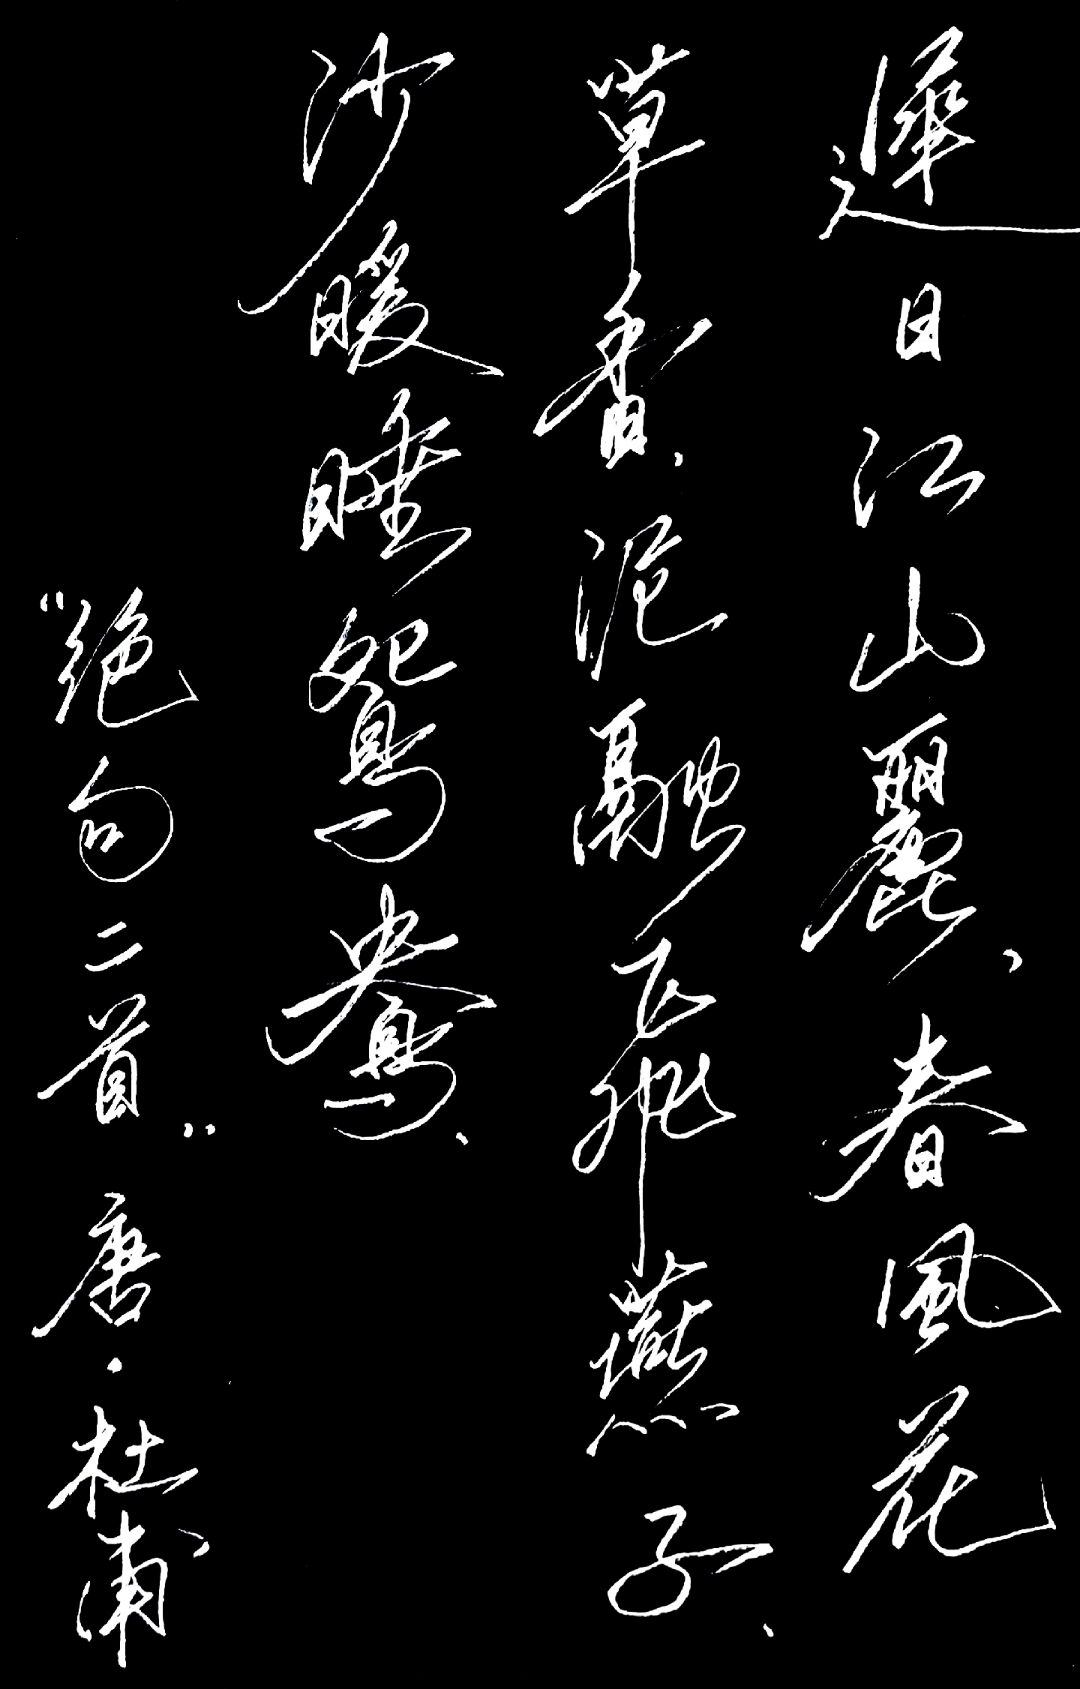 遲日江山麗、春風花
草香、泥融飛燕子、
沙暖睡鴛鴦、
“绝句二首”唐·杜甫